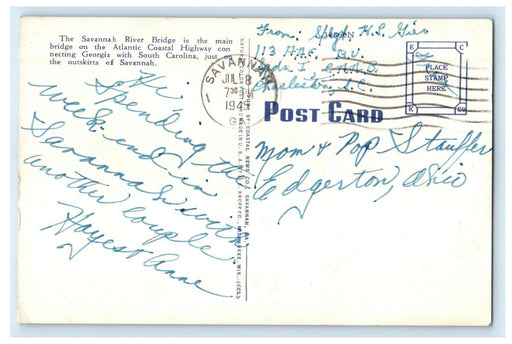 The Savannah River Bridge is the main
bridge on the Atlantic Coastal Highway con
necting Georgia with South Carolina, just
the outskirts of Savannah.
Hi
Spending the
week-end in
Savannah with
another couple.
Hayes & Anne
From: Sgt. H.S.
113 AAF. B.U.
C.A.A.B.
Charleston, S.C.
SAVANNAH
JUL 8
7 30 PM
194
GA
E C
PLACE
STAMP
HERE
K Co
POST CARD
Mom & Pop Stauffer
Edgerton, Ohio
BY COASTAL NEWS CO., SAVANNAH, GA.
KROPP CO., MILWAUKEE, WIS.